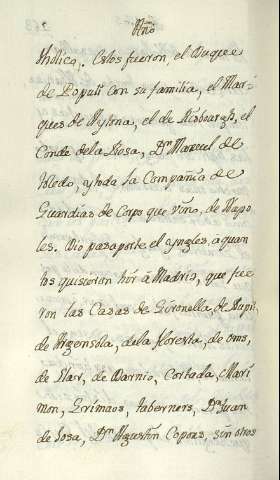 Año
thólico. Estos fueron, el Duque
de Popáli con su familia, el Mar-
ques de Aytona, el de Risbourgh, el
Conde dela Rosa, Dn Manuel de
toledo, y toda la Compañia de
Guardias de Corps que vino, de Napo
les. Dio pasaporte el yngles, a quan
tos quisieron hir à Madrid, que fue
ron las Casas de Gironella, de Rupit
de Argensola, dela floresta, de oms,
de Llar, de Darnio, Cortada, Mari
mon, Grimaos, taberners, Dn Juan
de Josa, Dn Agustin Copons, sin otros